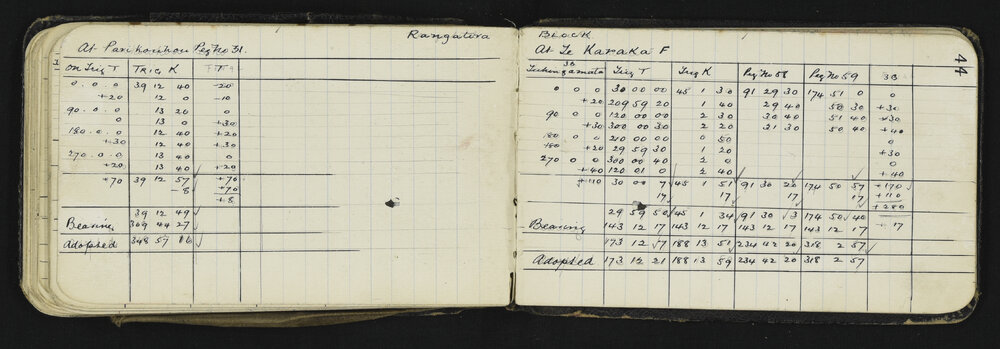 Rangatira Block
44
At Parikorihou Peg No 31.
on Trig T Trig K
0. 0. 0 39 12 40 -20
+20 12 0 -10
90. 0. 0 13 20 0
0 13 0 +30
180. 0. 0 12 40 +20
+30 12 40 +30
270. 0. 0 13 40 0
+20 13 40 +20
+70 39 12 57 +70
-8 +70
+8
39 12 49
Bearing 309 44 27
Adopted 348 57 16
At Te Karaka F
36
Trig T Trig K Peg No 58 Peg No 59 3B
0 0 0 30 00 00 45 1 30 91 29 30 174 51 0 0
+20 209 59 20 1 40 29 40 50 30 +30
90 0 0 120 00 00 2 30 30 40 51 40 +30
+30 300 00 30 2 20 31 30 50 40 +40
180 0 0 210 00 00 0 50 0
180 +20 29 59 30 1 20 +30
270 0 0 300 00 40 2 0 0
+40 120 01 0 2 40 +40
+110 30 00 7 45 1 51 91 30 20 174 50 57 +170
17 17 17 17 +110
+280
29 59 50 45 1 34 91 30 3 174 50 40 + 17
Bearing 143 12 17 143 12 17 143 12 17 143 12 17
173 12 7 188 13 51 234 42 20 318 2 57
Adopted 173 12 21 188 13 59 234 42 20 318 2 57